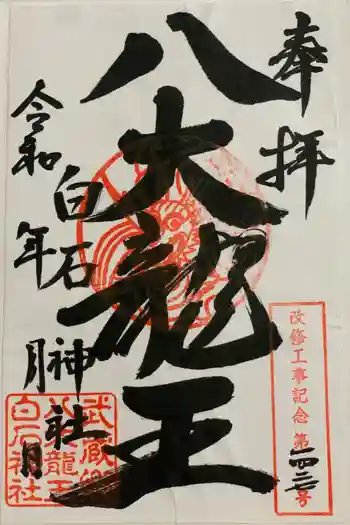 奉拝
八大龍王
白石神社
令和 年 月 日
改修工事記念 第一四二七号
武蔵
八大龍王
白石神社